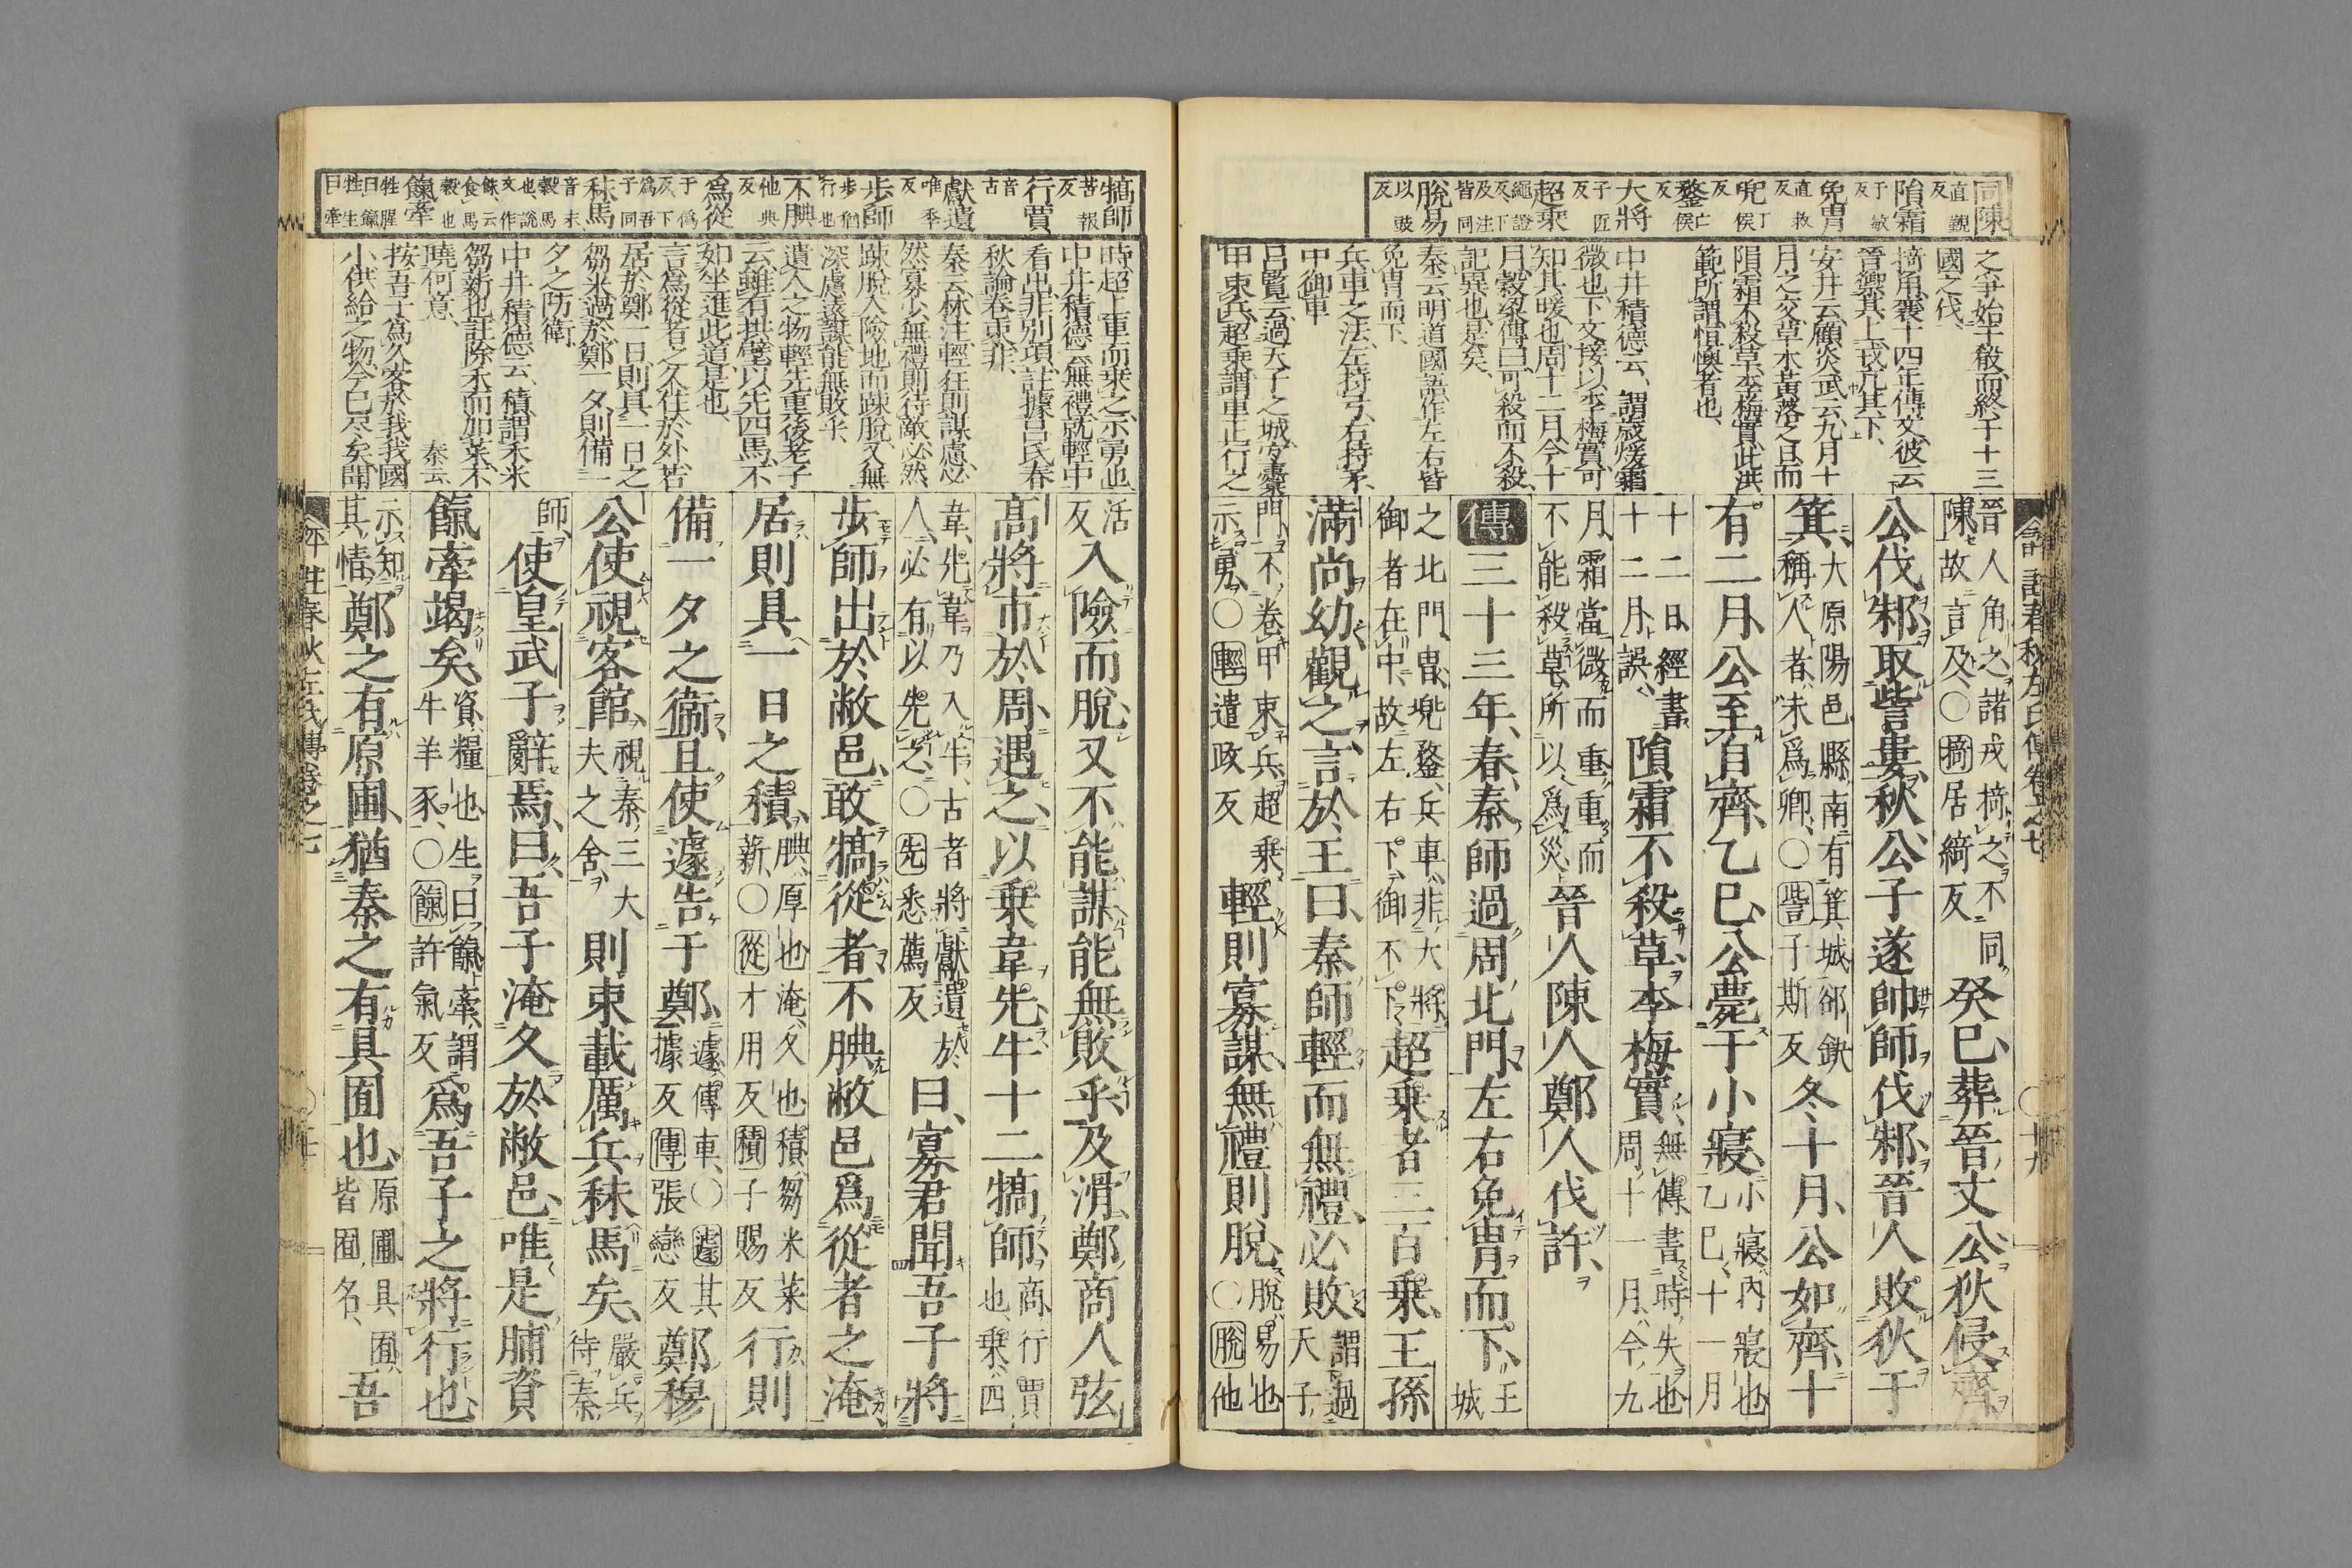 同陳 直覲反
隕霜 于敏反
免冑 直救反
兜 丁侯反
鍪 亡侯反
大將 子匠反
超乘 繩證反下及注皆同
脫易 以豉反
之爭始于敬而終于十三
國之伐
掎角襄十四年傳文彼云
晉禦其上戎亢其下
安井云顧炎武云九月十
月之交草木黃落之日而
隕霜不殺草李梅實此洪
範所謂恒燠者也
中井積德云謂歲煖霜
微也下文接以李梅實可
知其暖也周十二月今十
月穀梁傳曰可殺而不殺
記異也是矣
秦云明道國語作左右皆
免冑而下
兵車之法左持弓右持矛
中御車
呂覽云過天子之城宜櫜
甲束兵超乘謂車正行之
晉人角之諸戎掎之不同
陳故言及○掎居綺反
癸巳葬晉文公狄侵齊
公伐邾取訾婁秋公子遂帥師伐邾晉人敗狄于
箕 大原陽邑縣南有箕城郤缺稱人者未爲卿○訾子斯反 冬十月公如齊十
有二月公至自齊乙巳公薨于小寢 小寢內寢也乙巳十一月
十二日經書十二月誤 隕霜不殺草李梅實 無傳書時失也周十一月今九
月霜當微而重重而不能殺草所以爲災 晉人陳人鄭人伐許
傳三十三年春秦師過周北門左右免冑而下 王城
之北門冑兜鍪兵車非大將御者在中故左右下御不下 超乘者三百乘王孫
滿尚幼觀之言於王曰秦師輕而無禮必敗 謂過天子
門不卷甲束兵超乘示勇○輕遣政反 輕則寡謀無禮則脫 脫易也○脫他
犒師 苦報反
行賈 音古
獻遺 唯季反
步師 步猶行也
不腆 他典反
爲從 于僞反下爲吾子同
秣馬 音末穀馬也說文作䬴云食馬穀也
餼牽 牲腥曰餼牲生曰牽
時超上車而乘之示勇也
中井積德云無禮就輕中
看出非別項註據呂氏春
秋論卷束非
秦云林注輕往則謀慮必
然寡少無禮則待敵必然
疎脫入險地而疎脫又無
深慮遠謀能無敗乎
遺人之物輕先重後老子
云雖有拱璧以先四馬不
如坐進此道是也
言爲從者之久住於外苦
居於鄭一日則具一日之
芻米過於鄭一夕則備一
夕之防衛
中井積德云積謂禾米
芻薪也註除禾而加菜不
曉何意 秦云
按吾子爲久客於我我國
小供給之物今已尽矣聞
活反 入險而脫又不能謀能無敗乎及滑鄭商人弦
高將市於周遇之以乘韋先牛十二犒師 商行賈也乘四
韋先韋乃入牛古者將獻遺於人必有以先之○先悉薦反 曰寡君聞吾子將
步師出於敝邑敢犒從者不腆敝邑爲從者之淹
居則具一日之積 腆厚也淹久也積芻米菜薪○從才用反積子賜反 行則
備一夕之衞且使遽告于鄭 遽傳車○遽其據反傳張戀反 鄭穆
公使視客館 視秦三大夫之舍 則束載厲兵秣馬矣 嚴兵待秦
師 使皇武子辭焉曰吾子淹久於敝邑唯是脯資
餼牽竭矣 資糧也生曰餼牽謂牛羊豕○餼許氣反 爲吾子之將行也
示知其情 鄭之有原圃猶秦之有具囿也 原圃具囿皆囿名 吾